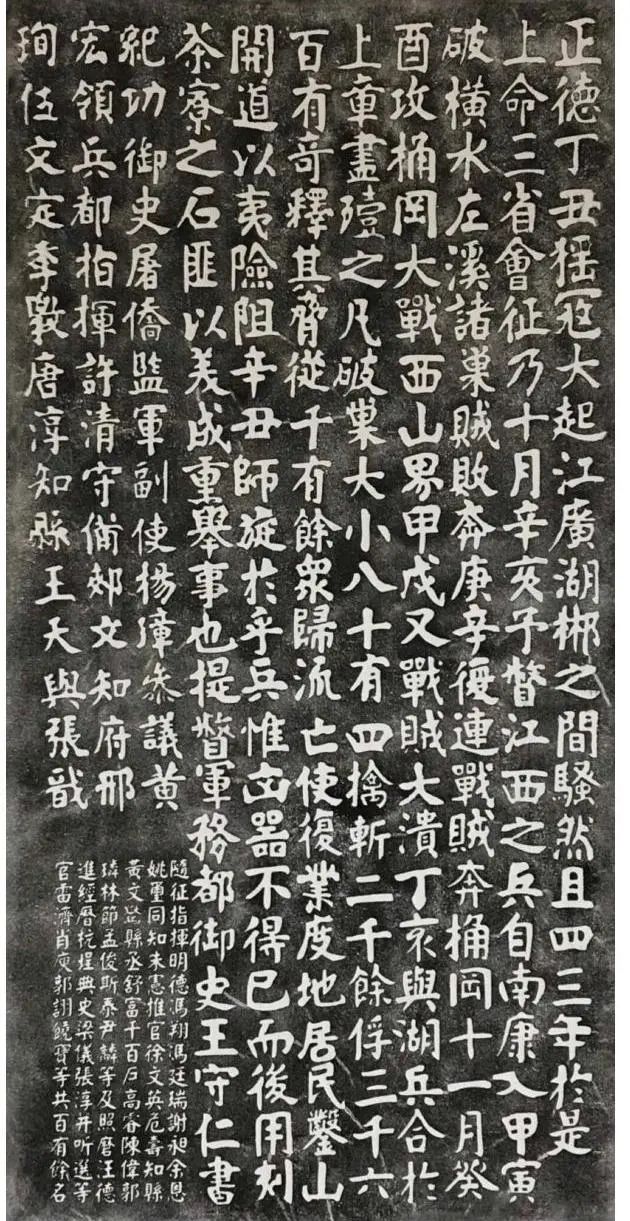 正德丁丑猺寇大起江廣湖郴之間騷然且四三年於是
上命三省會征乃十月辛亥予督江西之兵自南康入甲寅
破橫水左溪諸巢賊敗奔庚辛復連戰賊奔桶岡十一月癸
酉攻桶岡大戰西山界甲戌又戰賊大潰丁亥與湖兵合於
上章盡殪之凡破巢大小八十有四擒斬二千餘俘三千六
百有奇釋其脅從千有餘眾歸流亡使復業度地居民鑿山
開道以夷險阻辛丑師旋於乎兵惟凶器不得已而後用刻
茶寮之石匪以美成重舉事也提督軍務都御史王守仁書
紀功御史屠僑監軍副使楊璋參議黃
宏領兵都指揮許清守備郟文知府邢
珣伍文定季斆唐淳知縣王天與張戩
隨征指揮明德馮翔馮廷瑞謝昶余恩
姚璽同知朱憲推官徐文英危壽知縣
黃文縣丞舒富千百戶高睿陳偉郭
璘林節孟俊斯泰尹麟等及照磨汪德
進經曆杭埕典史梁儀張淳并听選等
官雷濟肖庾郭詡饒寶等共百有餘名